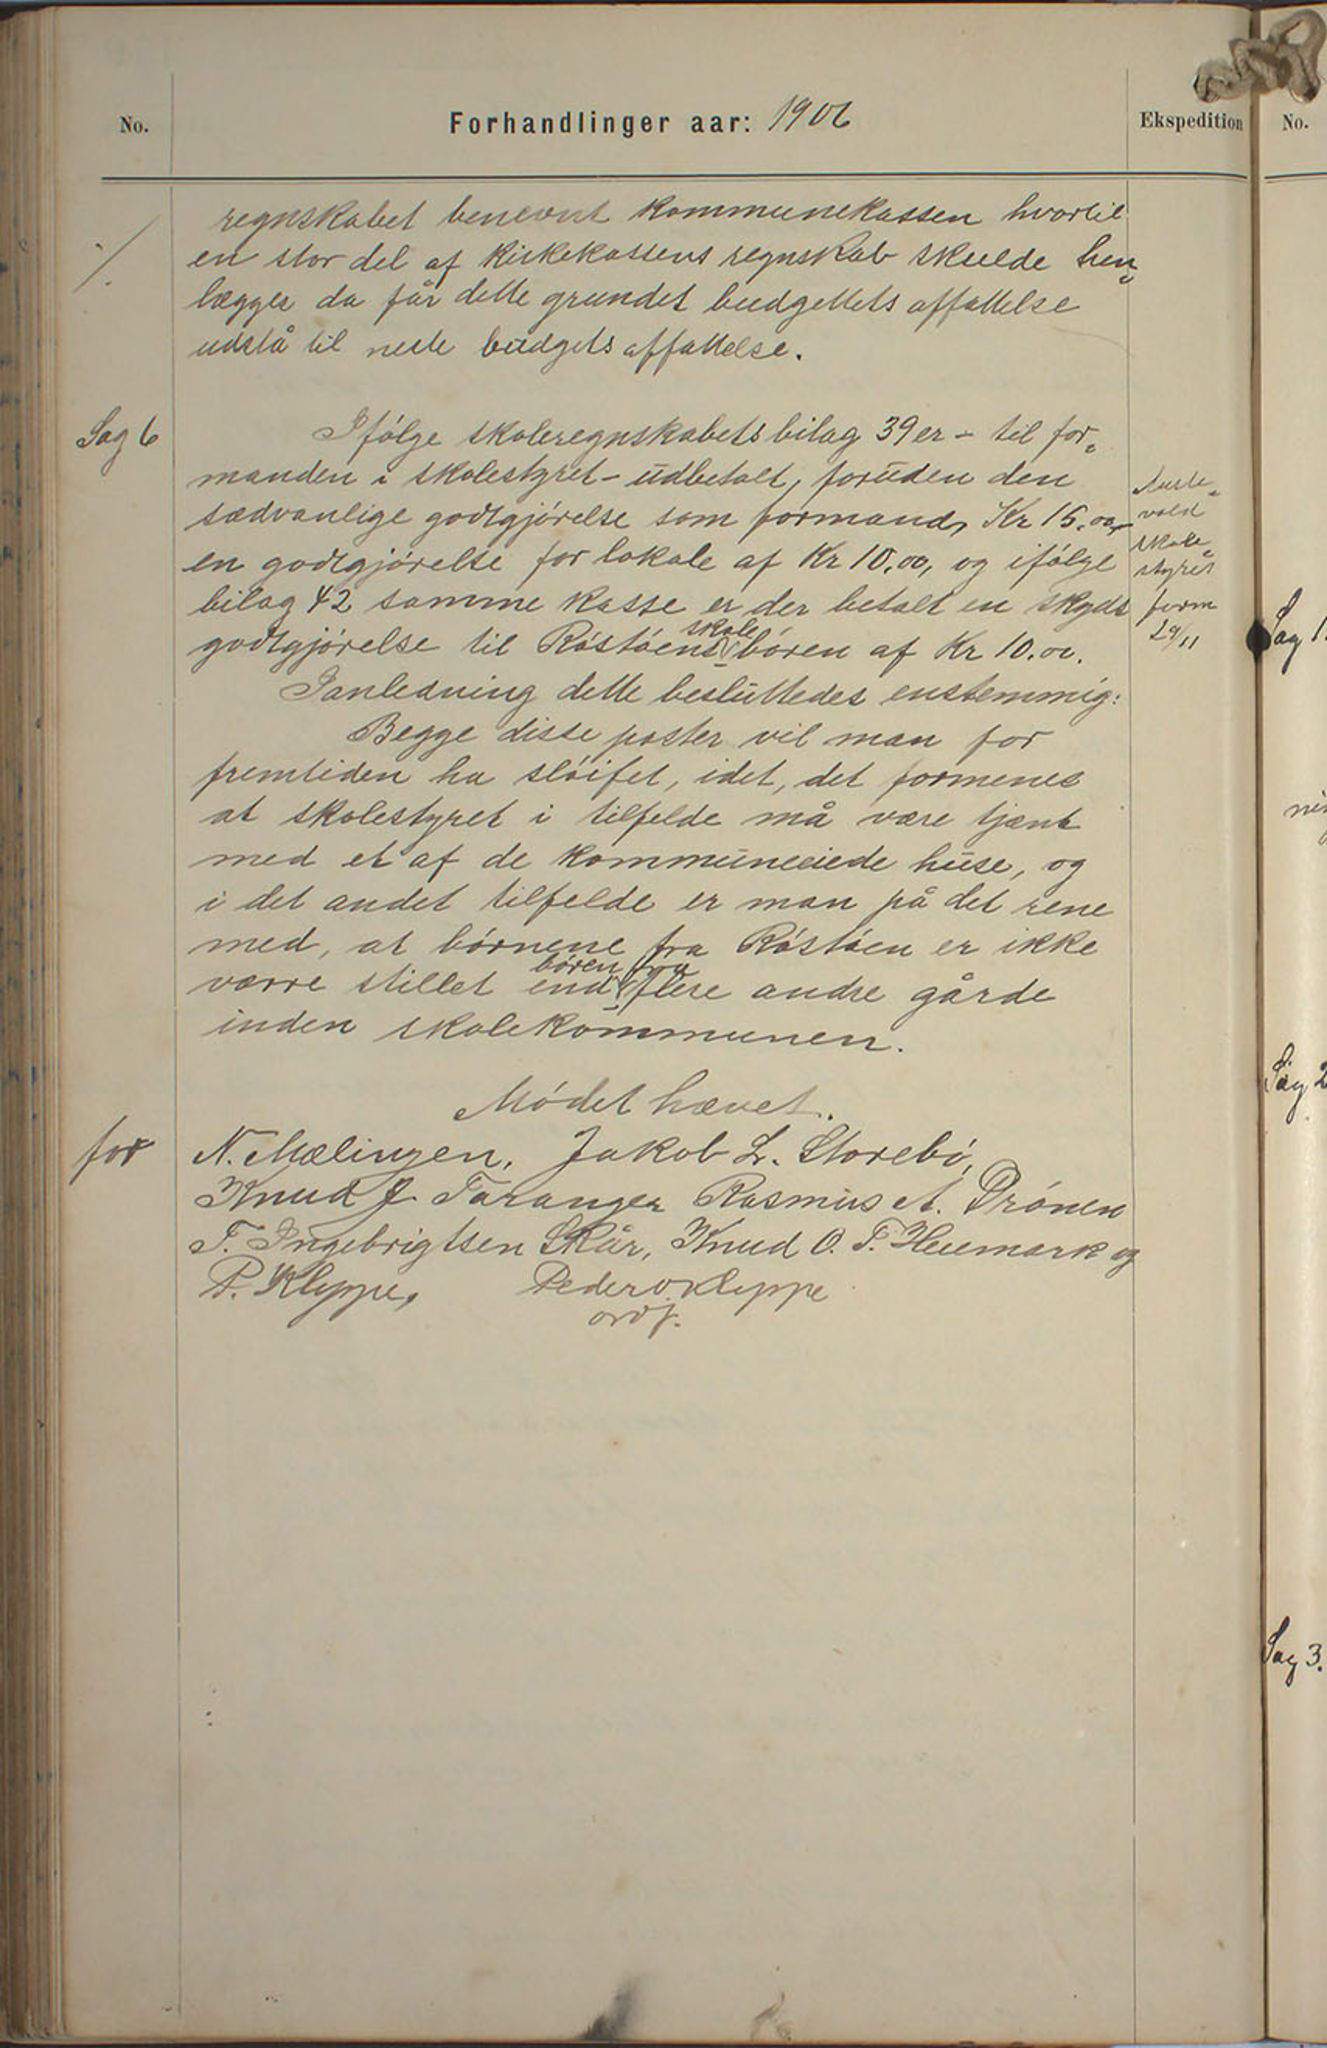 No.
Forhandlinger aar: 1906
Ekspedition
No.
regnskabet benevnt kommunekassen hvortil
en stor del af kirkekassens regnskab skulde hen„
lægges da får dette grundet budgettets affattelse
udstå til neste budgets affattelse.
Sag 6
Ifølge skoleregnskabets bilag 39 er - til for„
manden i skolestyret - udbetalt, foruden den
sædvanlige godtgjørelse som formand, Kr 15.00,
en godtgjørelse for lokale af Kr 10.00, og ifølge
bilag 42 samme kasse er der betalt en skyds
godtgjørelse til Røstøens skole børen af Kr 10.00.
Auste„
vold
skole„
styres
form
29/11
Ianledning dette besluttedes enstemmig:
Begge disse poster vil man for
fremtiden ha sløifet, idet, det formenes
at skolestyret i tilfelde må være tjent
med et af de kommuneeiede huse, og
i det andet tilfelde er man på det rene
med, at børnene fra Røstøen er ikke
værre stillet end børen fra flere andre gårde
inden skolekommunen.
Mødet hævet.
for
N. Mælingen, Jakob L. Storebø,
Knud J. Taranger Rasmus A. Drønen
T. Ingebrigtsen Skår, Knud O. T. Heimark og
P. Kleppe, Peder O Kleppe
ordf.
Sag 1.
Sag 2
Sag 3.